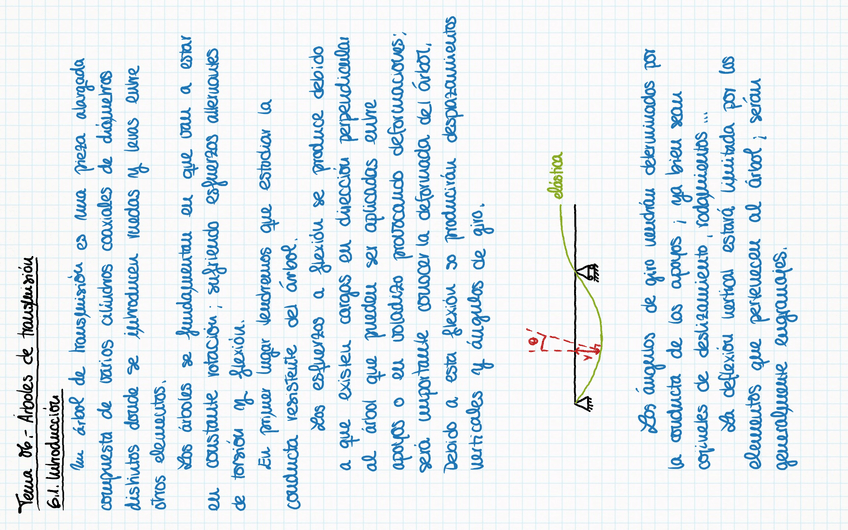 Tema 06.- Árboles de transmisión
6.1. Introducción
Un árbol de transmisión es una pieza alargada
compuesta de varios cilindros coaxiales de diámetros
distintos donde se introducen ruedas y levas entre
otros elementos.
Los árboles se fundamentan en que van a estar
en constante rotación; sufriendo esfuerzos alternantes
de torsión y flexión.
En primer lugar tendremos que estudiar la
conducta resistente del árbol.
Los esfuerzos a flexión se produce debido
a que existen cargas en dirección perpendicular
al árbol que pueden ser aplicadas entre
apoyos o en voladizo provocando deformaciones;
será importante conocer la deformada del árbol.
Debido a esta flexión se producirán desplazamientos
verticales y ángulos de giro.
θ
y
elástica
Los ángulos de giro vendrán determinados por
la conducta de los apoyos; ya bien sean
cojinetes de deslizamiento, rodamientos...
La deflexión vertical estará limitada por los
elementos que pertenecen al árbol; serán
generalmente engranajes.